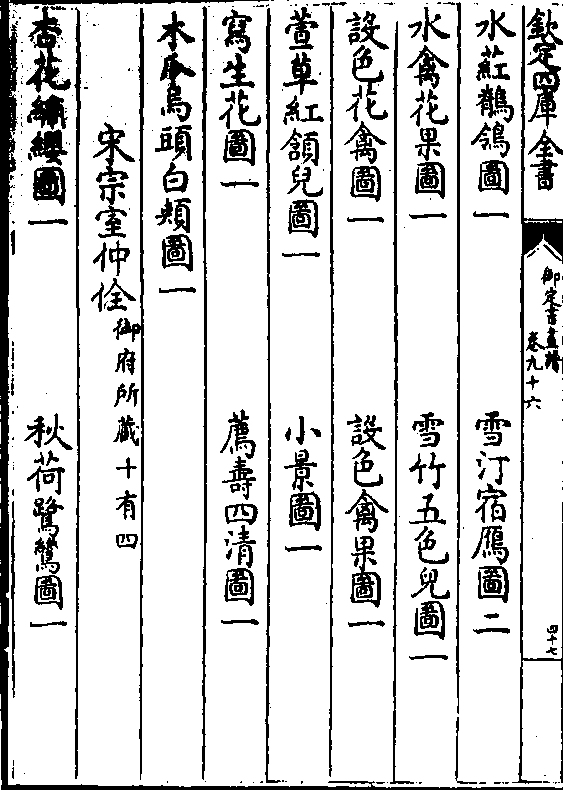 欽定四庫全書
御定書畫譜
卷九十六
四十七
水葒鶺鴒圖一 雪汀宿鴈圖二
水禽花果圖一 雪竹五色兒圖一
設色花禽圖一 設色禽果圖一
萱草紅頷兒圖一 小景圖一
寫生花圖一 薦壽四清圖一
木瓜烏頭白頰圖一
宋宗室仲佺御府所藏十有四
杏花繡纓圖一 秋荷鷺鷥圖一